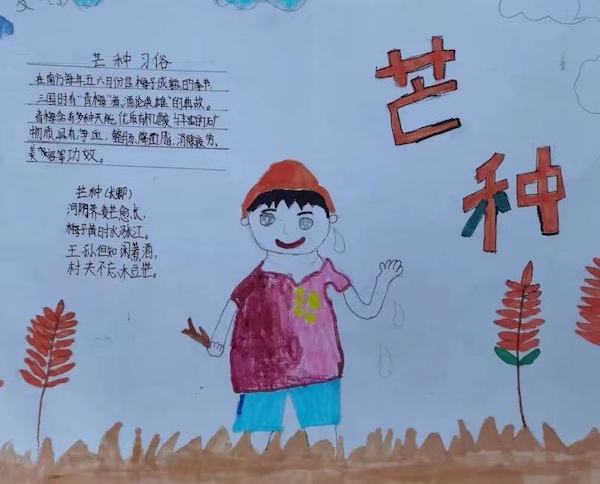 芒种
芒种习俗
在南方每年五六月份是梅子成熟的季节
三国时有"青梅"煮,酒论英雄"的典故。
青梅含有多种天然优质有机酸与丰富的矿
物质,具有净血、整肠、降血脂、消除疲劳、
美容等功效。
芒种(长卿)
河阴荞麦芒愈长,
梅子黄时水涨江。
王孙但知闲煮酒,
村夫不忘禾豆忙。